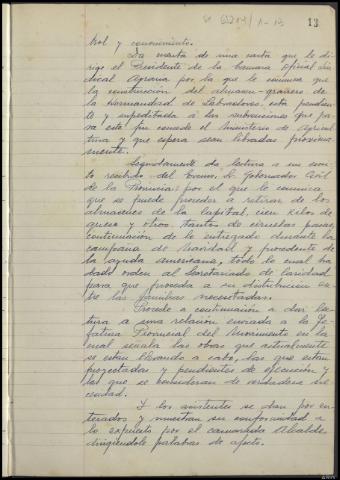 13
trol y conocimiento.
Da cuenta de una carta que le di-
rige el Presidente de la Camara Oficial Sin-
dical Agraria por la que le comunica que
la construcción del almacen-granero de
la Hermandad de Labradores, esta pendien-
te y supeditada a las subvenciones que pa-
ra este fin concede el Ministerio de Agricul-
tura y que espera sean libradas proxima-
mente.
Seguidamente da lectura a un escri-
to recibido del Excmo. Sr. Gobernador Civil
de la Provincia: por el que le comunica
que se puede proceder a retirar de los
almacenes de la Capital, cien kilos de
queso y otros tantos de ciruelas pasas,
continuacion de lo entregado durante la
campaña de Navidad y procedente de
la ayuda americana, todo lo cual ha
dado orden al Secretariado de Caridad
para que proceda a su distribucion en-
tre las familias necesitadas.
Procede a continuación a dar lec-
tura a una relación enviada a la Je-
fatura Provincial del Movimiento en la
cual señala las obras que actualmente
se estan llevando a cabo, las que estan
proyectadas y pendientes de ejecución y
las que se consideran de verdadera ne-
cesidad.
Y los asistentes se dan por en-
terados y muestran su conformidad a
lo expuesto por el camarada Alcalde
dirigiendole palabras de afecto.